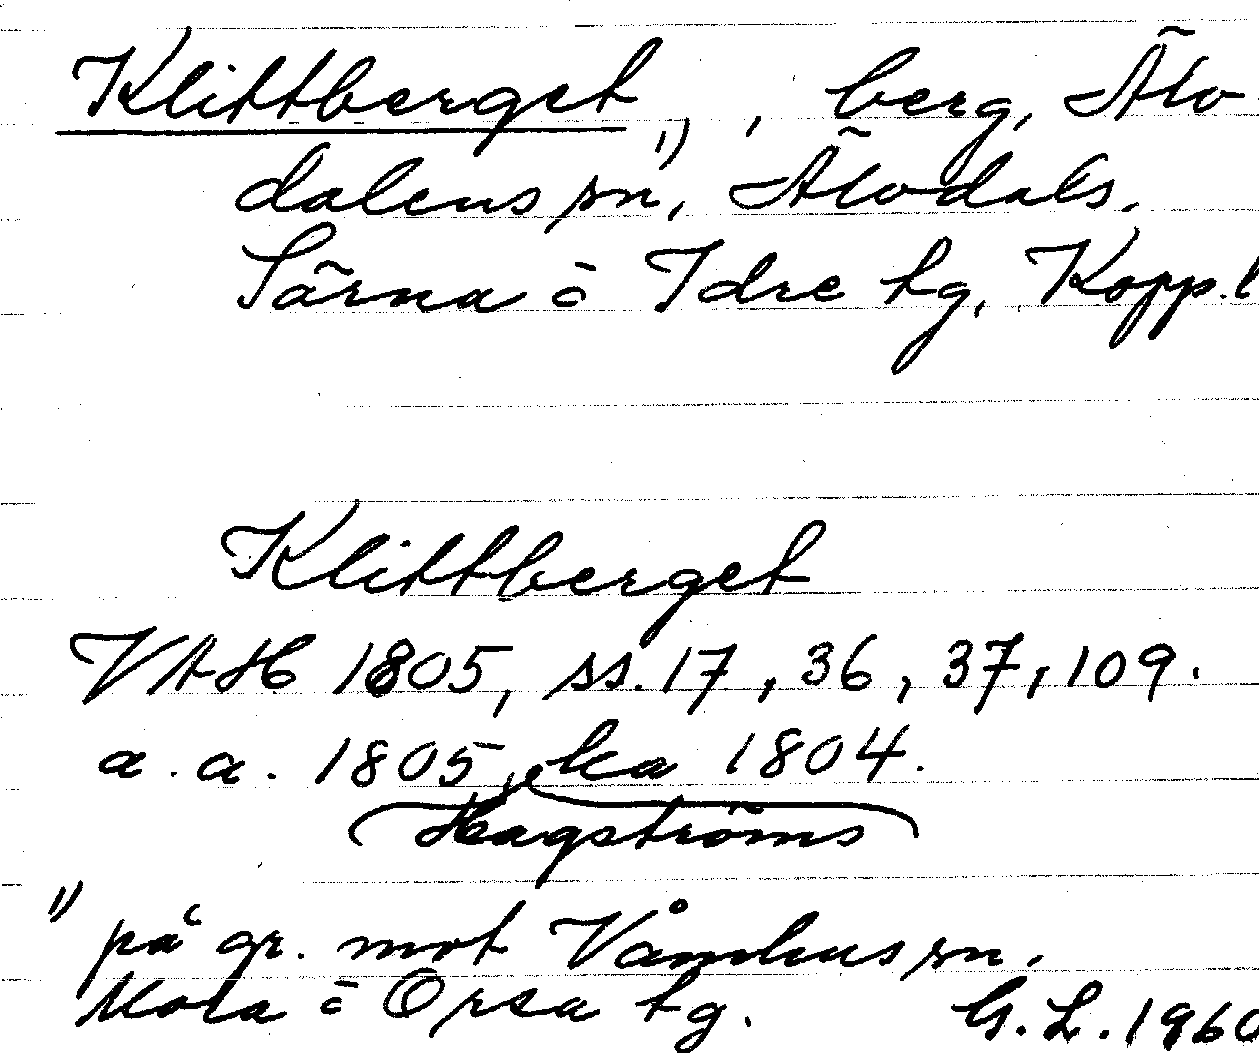 Klittberget 1), berg, Älv
dalens sn, Älvdals,
Särna o Idre tg, Kopp.l
Klittberget
VAH 1805, ss. 17, 36, 37, 109.
a. a. 1805, ka 1804.
Hagströms
1) på gr. mot Våmhus sn.
Mora o Orsa tg. G.L. 1960